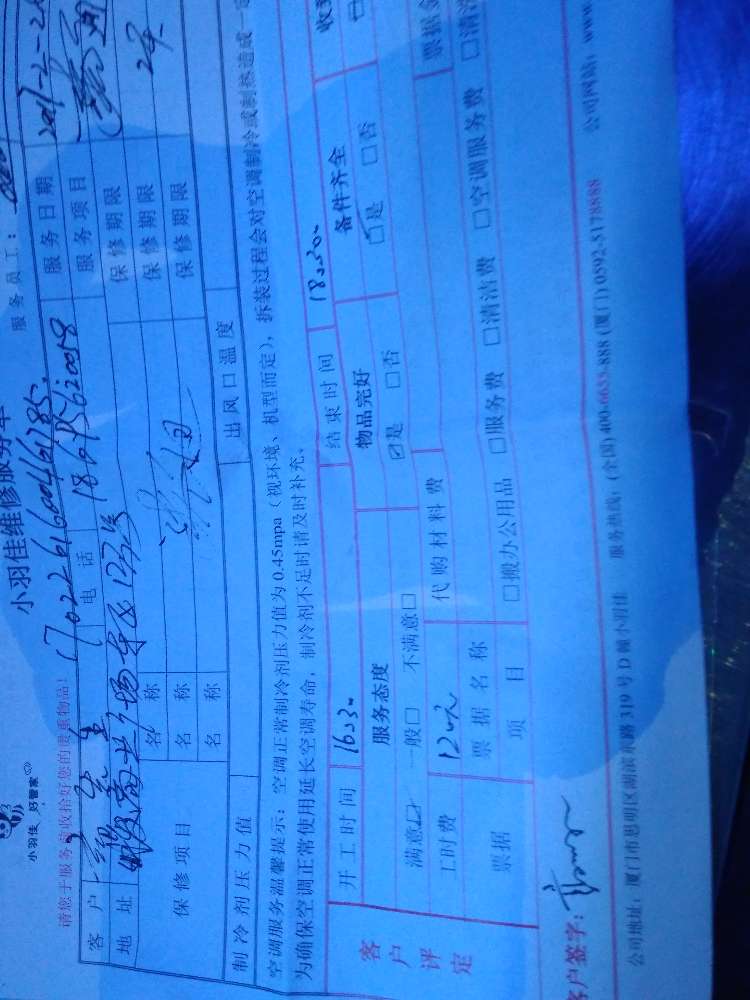 小羽佳 好管家
小羽佳维修服务单
服务员工:
请您于服务前收拾好您的贵重物品!
17022616004610185
服务日期 2017-2-26
客户
电话 18695620058
服务项目
地址
保修期限
保修项目 名称
保修期限 2年
名称
保修期限
名称
制冷剂压力值
出风口温度
空调服务温馨提示:空调正常制冷剂压力值为0.45mpa(视环境、机型而定),拆装过程会对空调制冷或制热造成一定
为确保空调正常使用延长空调寿命,制冷剂不足时请及时补充。
客户评定
开工时间 16:30
结束时间 18:30
收
服务态度
物品完好
备件齐全
满意☑ 一般☐ 不满意☐
☑是 ☐否
☑是 ☐否
工时费 120元
代购材料费
票据金
票据
票据名称
项目
☐搬办公用品 ☐服务费 ☐清洁费 ☐空调服务费 ☐清洁
客户签字:
公司地址:厦门市思明区湖滨东路319号D幢小羽佳 服务热线:(全国)400-6655-888 (厦门)0592-5178888 公司网站:www.